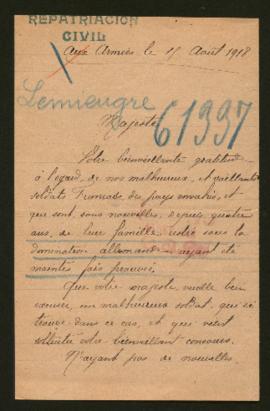 REPATRIACION
CIVIL
Aux Armées le 15 Août 1918
Lemeugre
61337
Majesté
Votre bienveillante
à l'égard, de nos malheureux, et vaillants
soldats Français, des pays envahis, et
qui sont, sans nouvelles, depuis quatre
ans, de leur famille, restée sous la
domination allemande, ayant été
maintes fois prouvée.
Que votre majesté, veuille bien
un malheureux soldat, qui se
trouve dans ce cas, et qui vient
solliciter votre bienveillant concours.
N'ayant pas de nouvelles